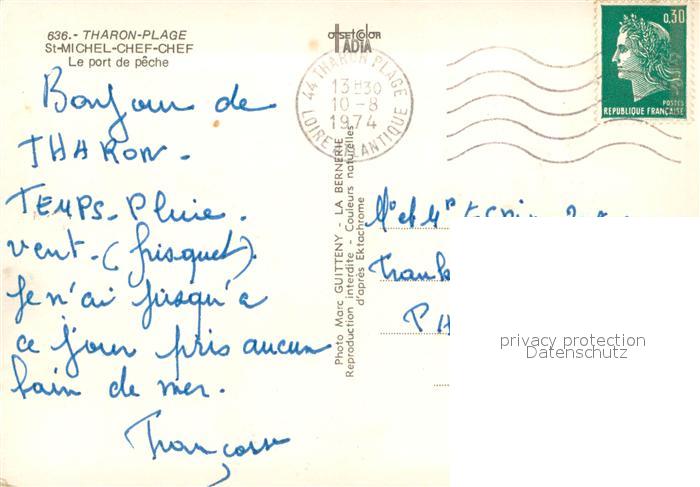 636.- THARON-PLAGE
St-MICHEL-CHEF-CHEF
Le port de pêche
OFFSET COLOR
IADIA
44 THARON PLAGE
13H30
10-8
1974
LOIRE ATLANTIQUE
0,30
POSTES
REPUBLIQUE FRANÇAISE
Bonjour de
THARON.
TEMPS. Pluie.
vent. (frisquet).
Je n'ai jusqu'a
ce jour pris aucun
bain de mer.
Photo Marc GUITTENY - LA BERNERIE
Reproduction interdite - Couleurs naturelles
d'après Ektachrome
privacy protection
Datenschutz